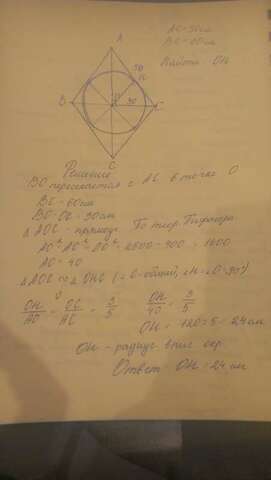 AC=50см
BC=60см
Найти OH
A
50
H
B
O
30
C
Решение
BO пересекается с AC в точке O
BC=60см
BO=OC=30см
△AOC - прямоуг. По теор. Пифагора
AO²=AC²-OC²=2500-900=1600
AO=40
△AOC ∞ △OHC (∠C-общий, ∠H=∠O=90°)
OH/AO = OC/AC = 3/5 OH/40 = 3/5
OH = 120:5=24см
OH - радиус впис. окр.
Ответ: OH=24см